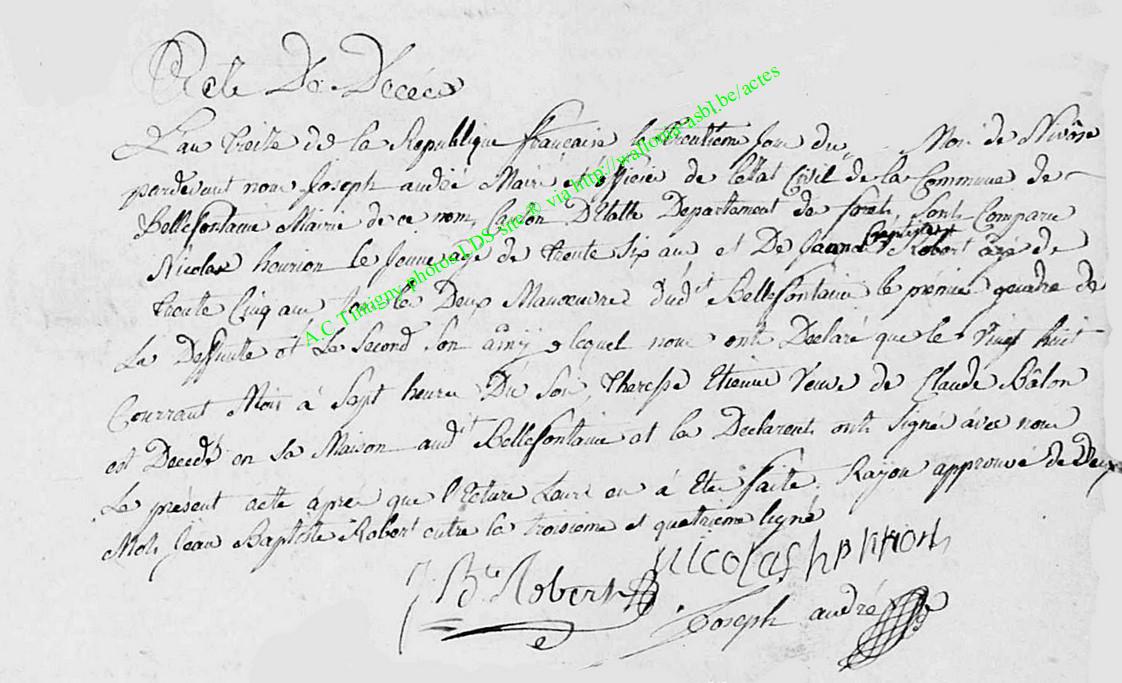 Acte De Décés
L'an treize de la Republique française le trentieme Jour du Mois de Nivôse
pardevant nous Joseph andré Maire et officié de l'état Civil de la Commune de
Bellefontaine Mairie de ce nom, Canton D'Etalle Departement de forets Sont Comparu
Nicolas henrion le Jeune agé de trente Six ans et De Jean Baptiste Robert agé de
trente Cinq ans tous les Deux Manœuvre dud't Bellefontaine le prémier gendre de
La Deffuitte et Le Second Son amy, lequel nous onts Declaré que le Vingt huit
Courrant Mois à Sept heures Du Soir, Theresse Etienne Veuve de Claude Bâlon
est Decedé en Sa Maison aud't Bellefontaine et les Declarents onts Signé avec nous
Le présent acte àprés que l'Ecture Leurs en à Eté faite. Rayon approuvé de deux
Mots Jean Baptiste Robert entre la troisieme et quatrieme ligne
J Bte Robert
Nicolas henrion
Joseph andré
A.C Tintigny photos LDS-site® via http://wallonia-asbl.be/actes